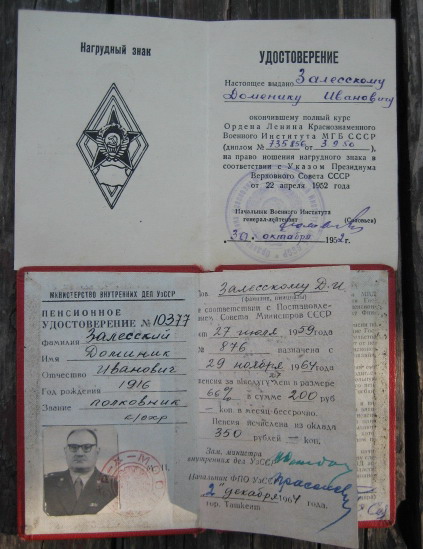 Нагрудный знак
УДОСТОВЕРЕНИЕ
Настоящее выдано Залесскому
Доменику Ивановичу
окончившему полный курс
Ордена Ленина Краснознаменного
Военного Института МГБ СССР
(диплом № 735850 от 3 9 50 ),
на право ношения нагрудного знака в
соответствии с Указом Президиума
Верховного Совета СССР
от 22 апреля 1952 года
Начальник Военного Института
генерал-лейтенант (Соловьев)
„30" октября 1952 г.
МИНИСТЕРСТВО ВНУТРЕННИХ ДЕЛ УзССР
ПЕНСИОННОЕ
УДОСТОВЕРЕНИЕ № 10377
фамилия Залесский
Имя Доминик
Отчество Иванович
Год рождения 1916
Звание полковник
в/охр
Залесскому Д.И.
(фамилия, инициалы)
в соответствии с Постановле-
нием Совета Министров СССР
от 27 июля 1959 года
№ 876 назначена с
29 ноября 1964 года
пенсия за выслугу лет в размере
66% в сумме 200 руб
— коп. в месяц-бессрочно.
Пенсия исчислена из оклада
350 рублей — коп.
Зам. министра
внутренних дел УзССР
Начальник ФПО УзССР
„2" декабря 1964 года.
гор. Ташкент